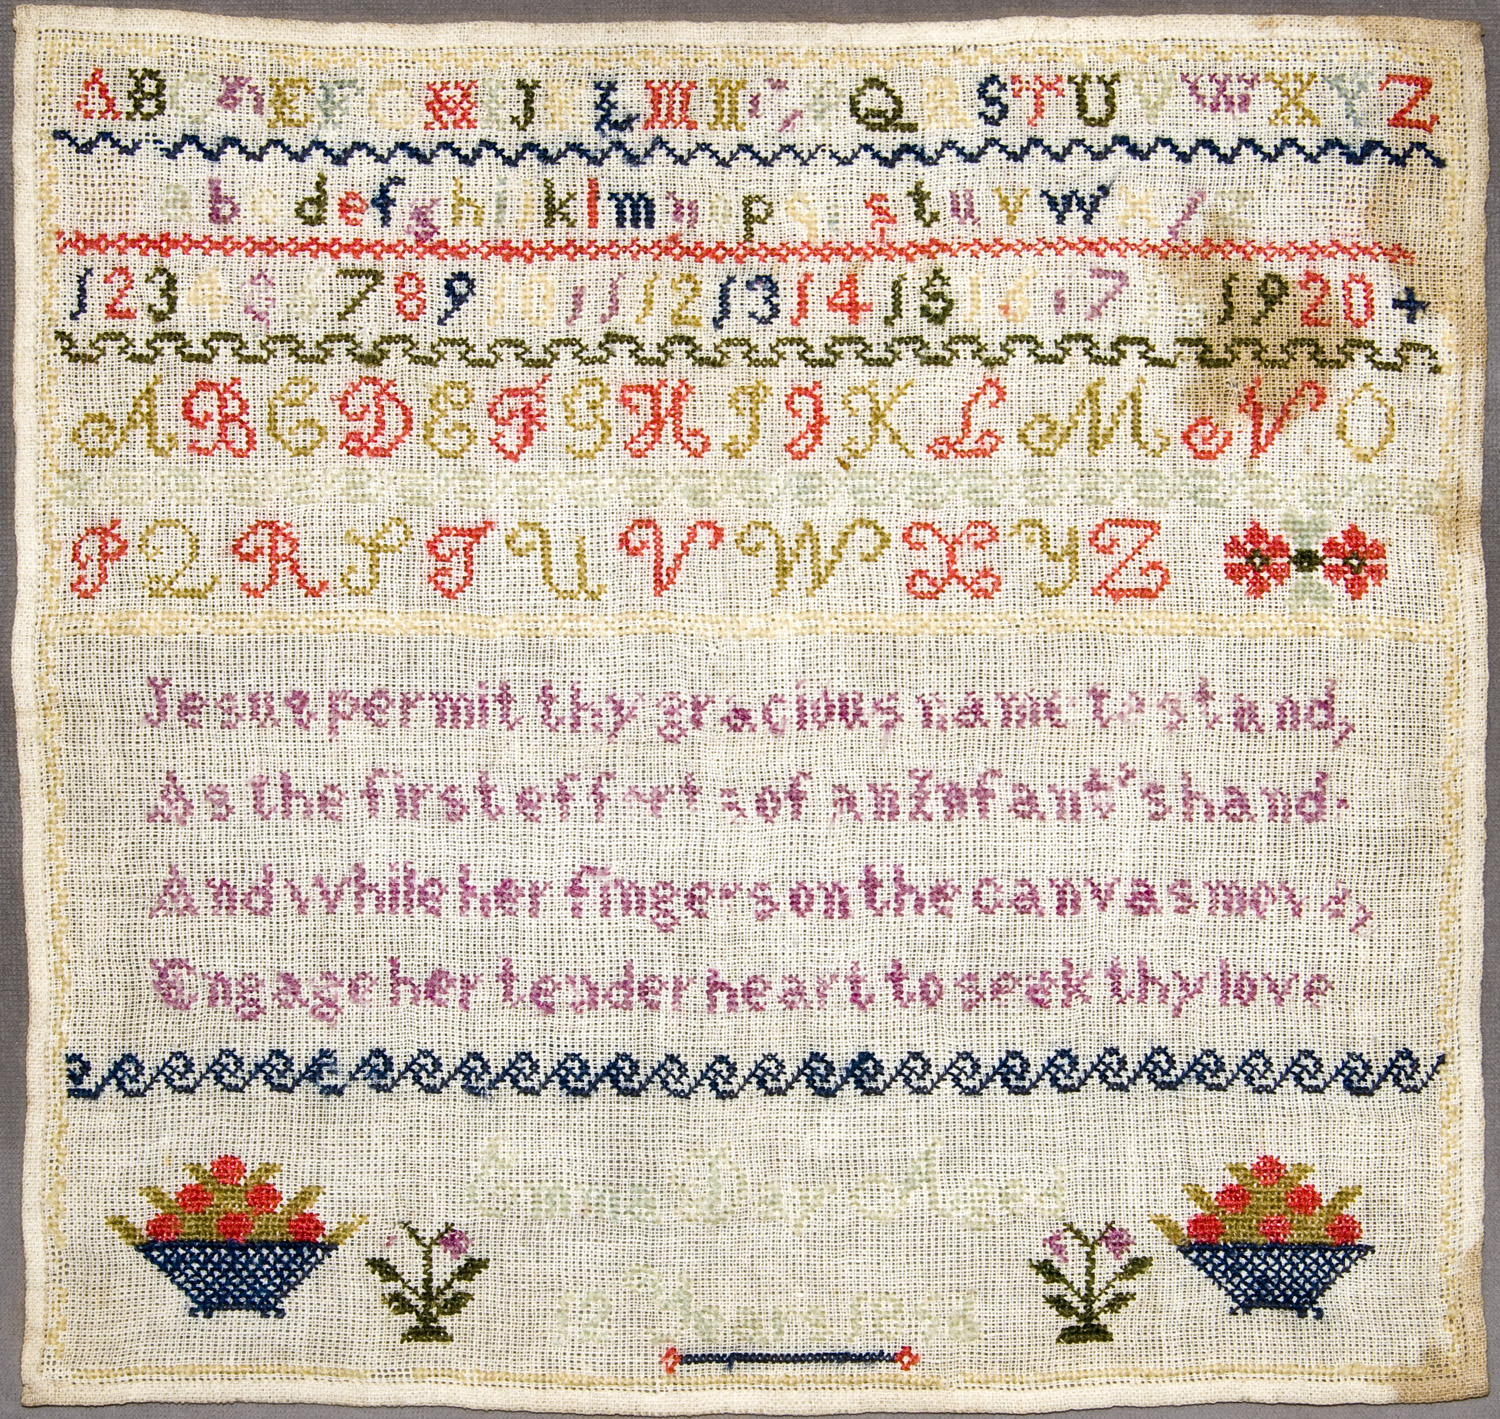 A B C D E F G H I J K L M N O P Q R S T U V W X Y Z
a b c d e f g h i j k l m n o p q r s t u v w x y z
1 2 3 4 5 6 7 8 9 10 11 12 13 14 15 16 17 18 19 20 +
A B C D E F G H I J K L M N O
P Q R S T U V W X Y Z
Jesus permit thy gracious name to stand,
As the first efforts of an Infant's hand.
And While her fingers on the canvas move,
Engage her tender heart to seek thy love
Emma Day Aged
Years